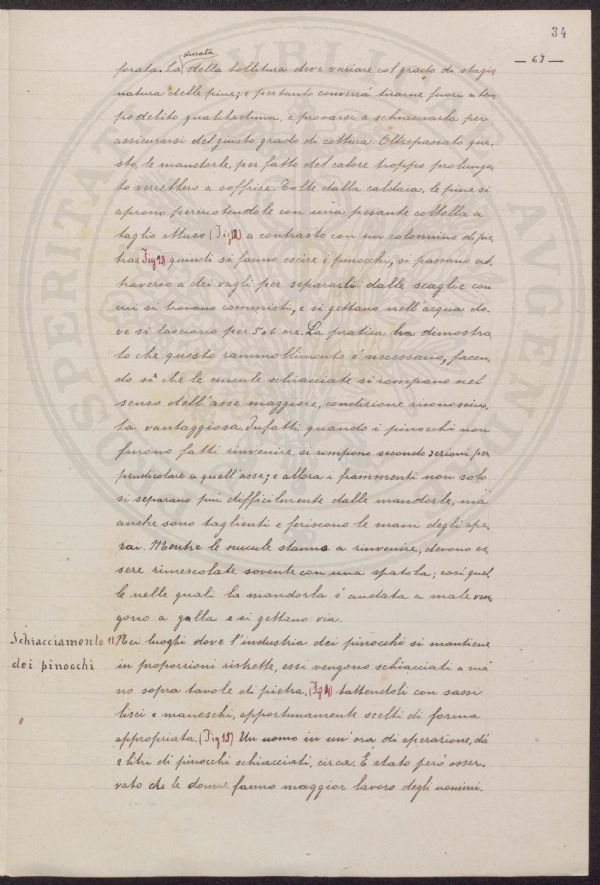 34
— 67 —
durata
forata. La della bollitura deve variare col grado di stagio
natura delle pine; e pertanto converrà tirarne fuori a tem
po debito qualcheduna, e provarsi a schiacciarla per
assicurarsi del giusto grado di cottura. Oltrepassato que-
sto, le mandorle, per fatto del calore troppo prolunga
to verrebbero a soffrire. Tolte dalla caldaia, le pine si
aprono percuotendole con una pesante coltella a
taglio ottuso (Fig 12) a contrasto con un colonnino di pie
tra quindi si fanno escire i pinocchi, si passano at
traverso a dei vagli per separarli dalle scaglie con
cui si trovano commisti, e si gettano nell'acqua do-
ve si lasciano per 5 o 6 ore. La pratica ha dimostra
to che questo rammollimento è necessario, facen
do sì che le nucule schiacciate si rompano nel
senso dell'asse maggiore, condizione riconosciu,
ta vantaggiosa. Infatti quando i pinocchi non
furono fatti rinvenire, si rompono secondo sezioni per
pendicolare a quell'asse; e allora i frammenti non solo
si separano più difficilmente dalle mandorle, ma
anche sono taglienti e feriscono le mani degli ope-
rai. Mentre le nucule stanno a rinvenire, devono es
sere rimescolate sovente con una spatola; così quel
le nelle quali la mandorla è andata a male ven
gono a galla e si gettano via.
Schiacciamento 11. Nei luoghi dove l'industria dei pinocchi si mantiene
dei pinocchi in proporzioni ristrette, essi vengono schiacciati a ma
no sopra tavole di pietra, (Fig 14) battendoli con sassi
lisci e maneschi, opportunamente scelti di forma
appropriata. (Fig 15) Un uomo in un'ora di operazione, dà
2 litri di pinocchi schiacciati, circa. È stato però osser-
vato che le donne fanno maggior lavoro degli uomini.